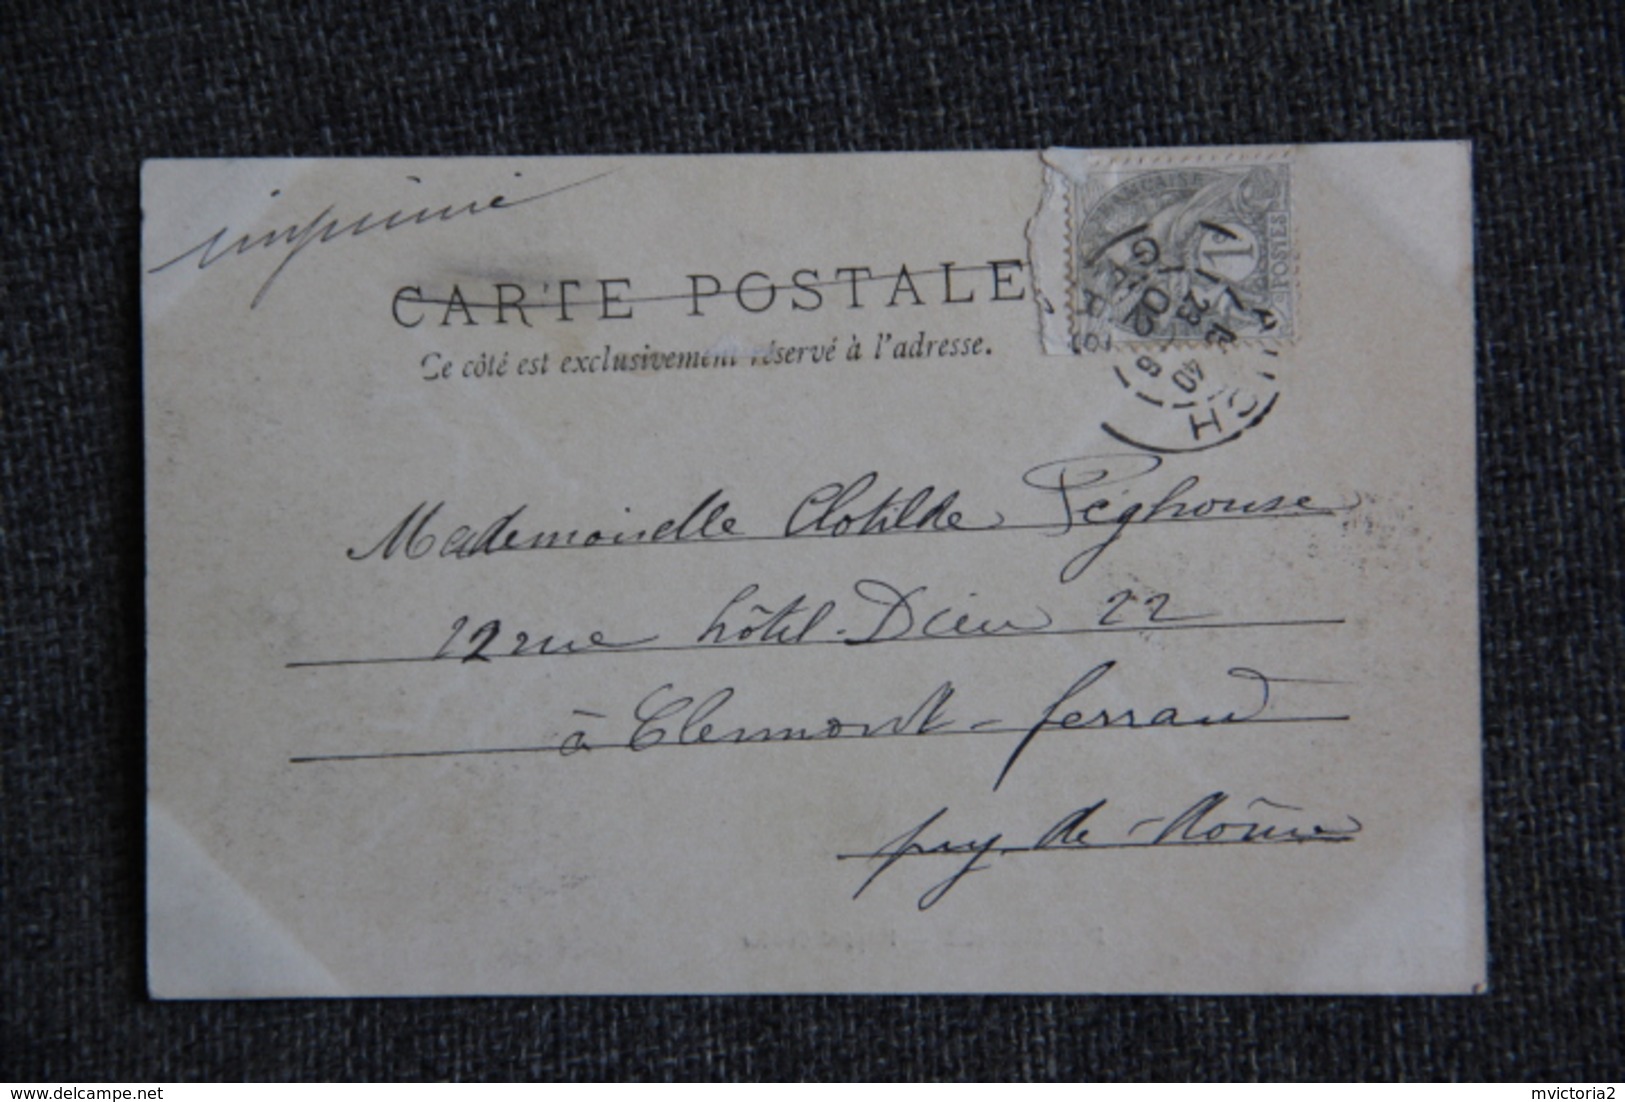 imprimé
CARTE POSTALE
Ce côté est exclusivement réservé à l'adresse.
FRANÇAISE
1c
POSTES
AUCH
GERS
23
6 40
02
Mademoiselle Clotilde Péghouse
22 rue hôtel-Dieu 22
à Clermont-ferrand
puy-de-Dôme
delcampe.net
mvictoria2